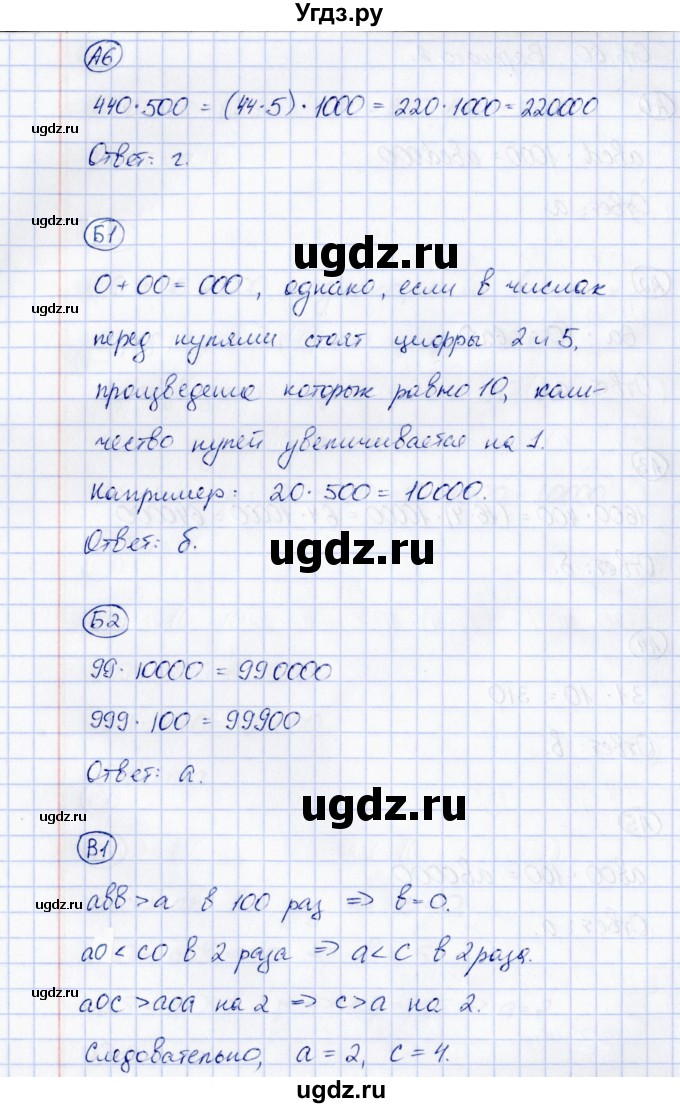 Угдз.ру
А6
440·500 = (44·5)·1000 = 220·1000 = 220000
ugdz.ru
Ответ: г.
ugdz.ru
Б1
ugdz.ru
0+00=000, однако, если в числах
ugdz.ru
перед нулями стоят цифры 2 и 5,
произведение которых равно 10, коли-
чество нулей увеличивается на 1.
Например: 20·500=10000.
Ответ: б.
ugdz.ru
ugdz.ru
Б2
99·10000 = 990000
999·100 = 99900
Ответ: а.
ugdz.ru
ugdz.ru
В1
авв>а в 100 раз => в=0.
ugdz.ru
а0<с0 в 2 раза => а<с в 2 раза.
а0с>а0а на 2 => с>а на 2.
ugdz.ru
Следовательно, а=2, с=4.
ugdz.ru